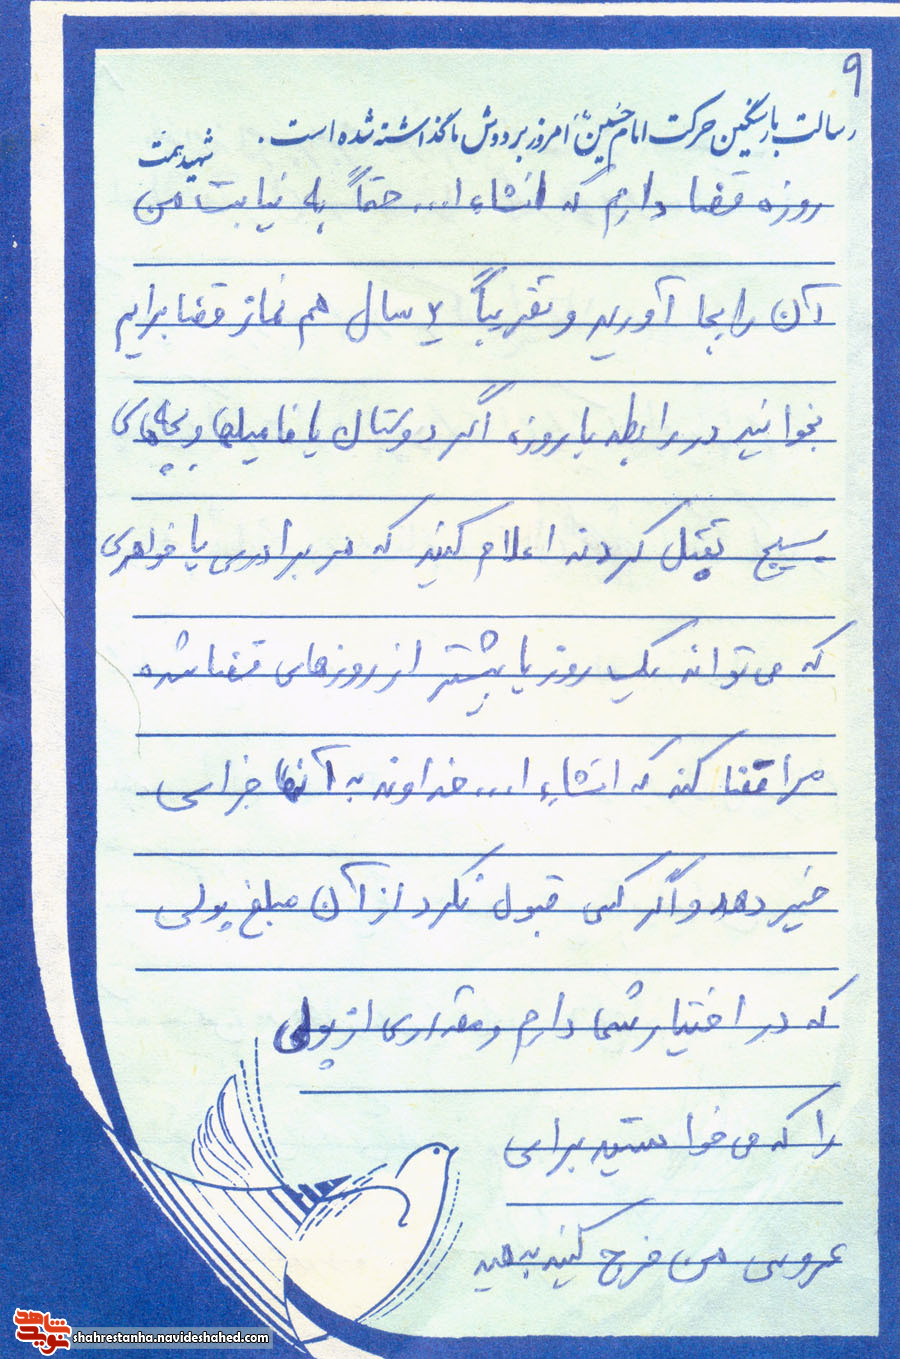 ۹
رسالت بار سنگین حرکت امام حسین (ع) امروز بر دوش ما گذاشته شده است.
شهید همت
روزه قضا دارم که انشاء ا... حتماً به نیابت من
آن را بجا آورید و تقریباً ۲ سال هم نماز قضا برایم
بخوانید در رابطه با روزه اگر دوستان یا فامیلها و بچه‌های
بسیج تقبل کردند اعلام کنید که هر برادری یا خواهری
که می تواند یک روز یا بیشتر از روزهای قضا شده
مرا قضا کند که انشاء ا... خداوند به آنها جزای
خیر دهد و اگر کسی قبول نکرد از آن مبلغ پولی
که در اختیار شما دارم و مقداری از پولی
را که می خواستید برای
عروسی من خرج کنید بدهید
شاهد نوید
shahrestanha.navideshahed.com